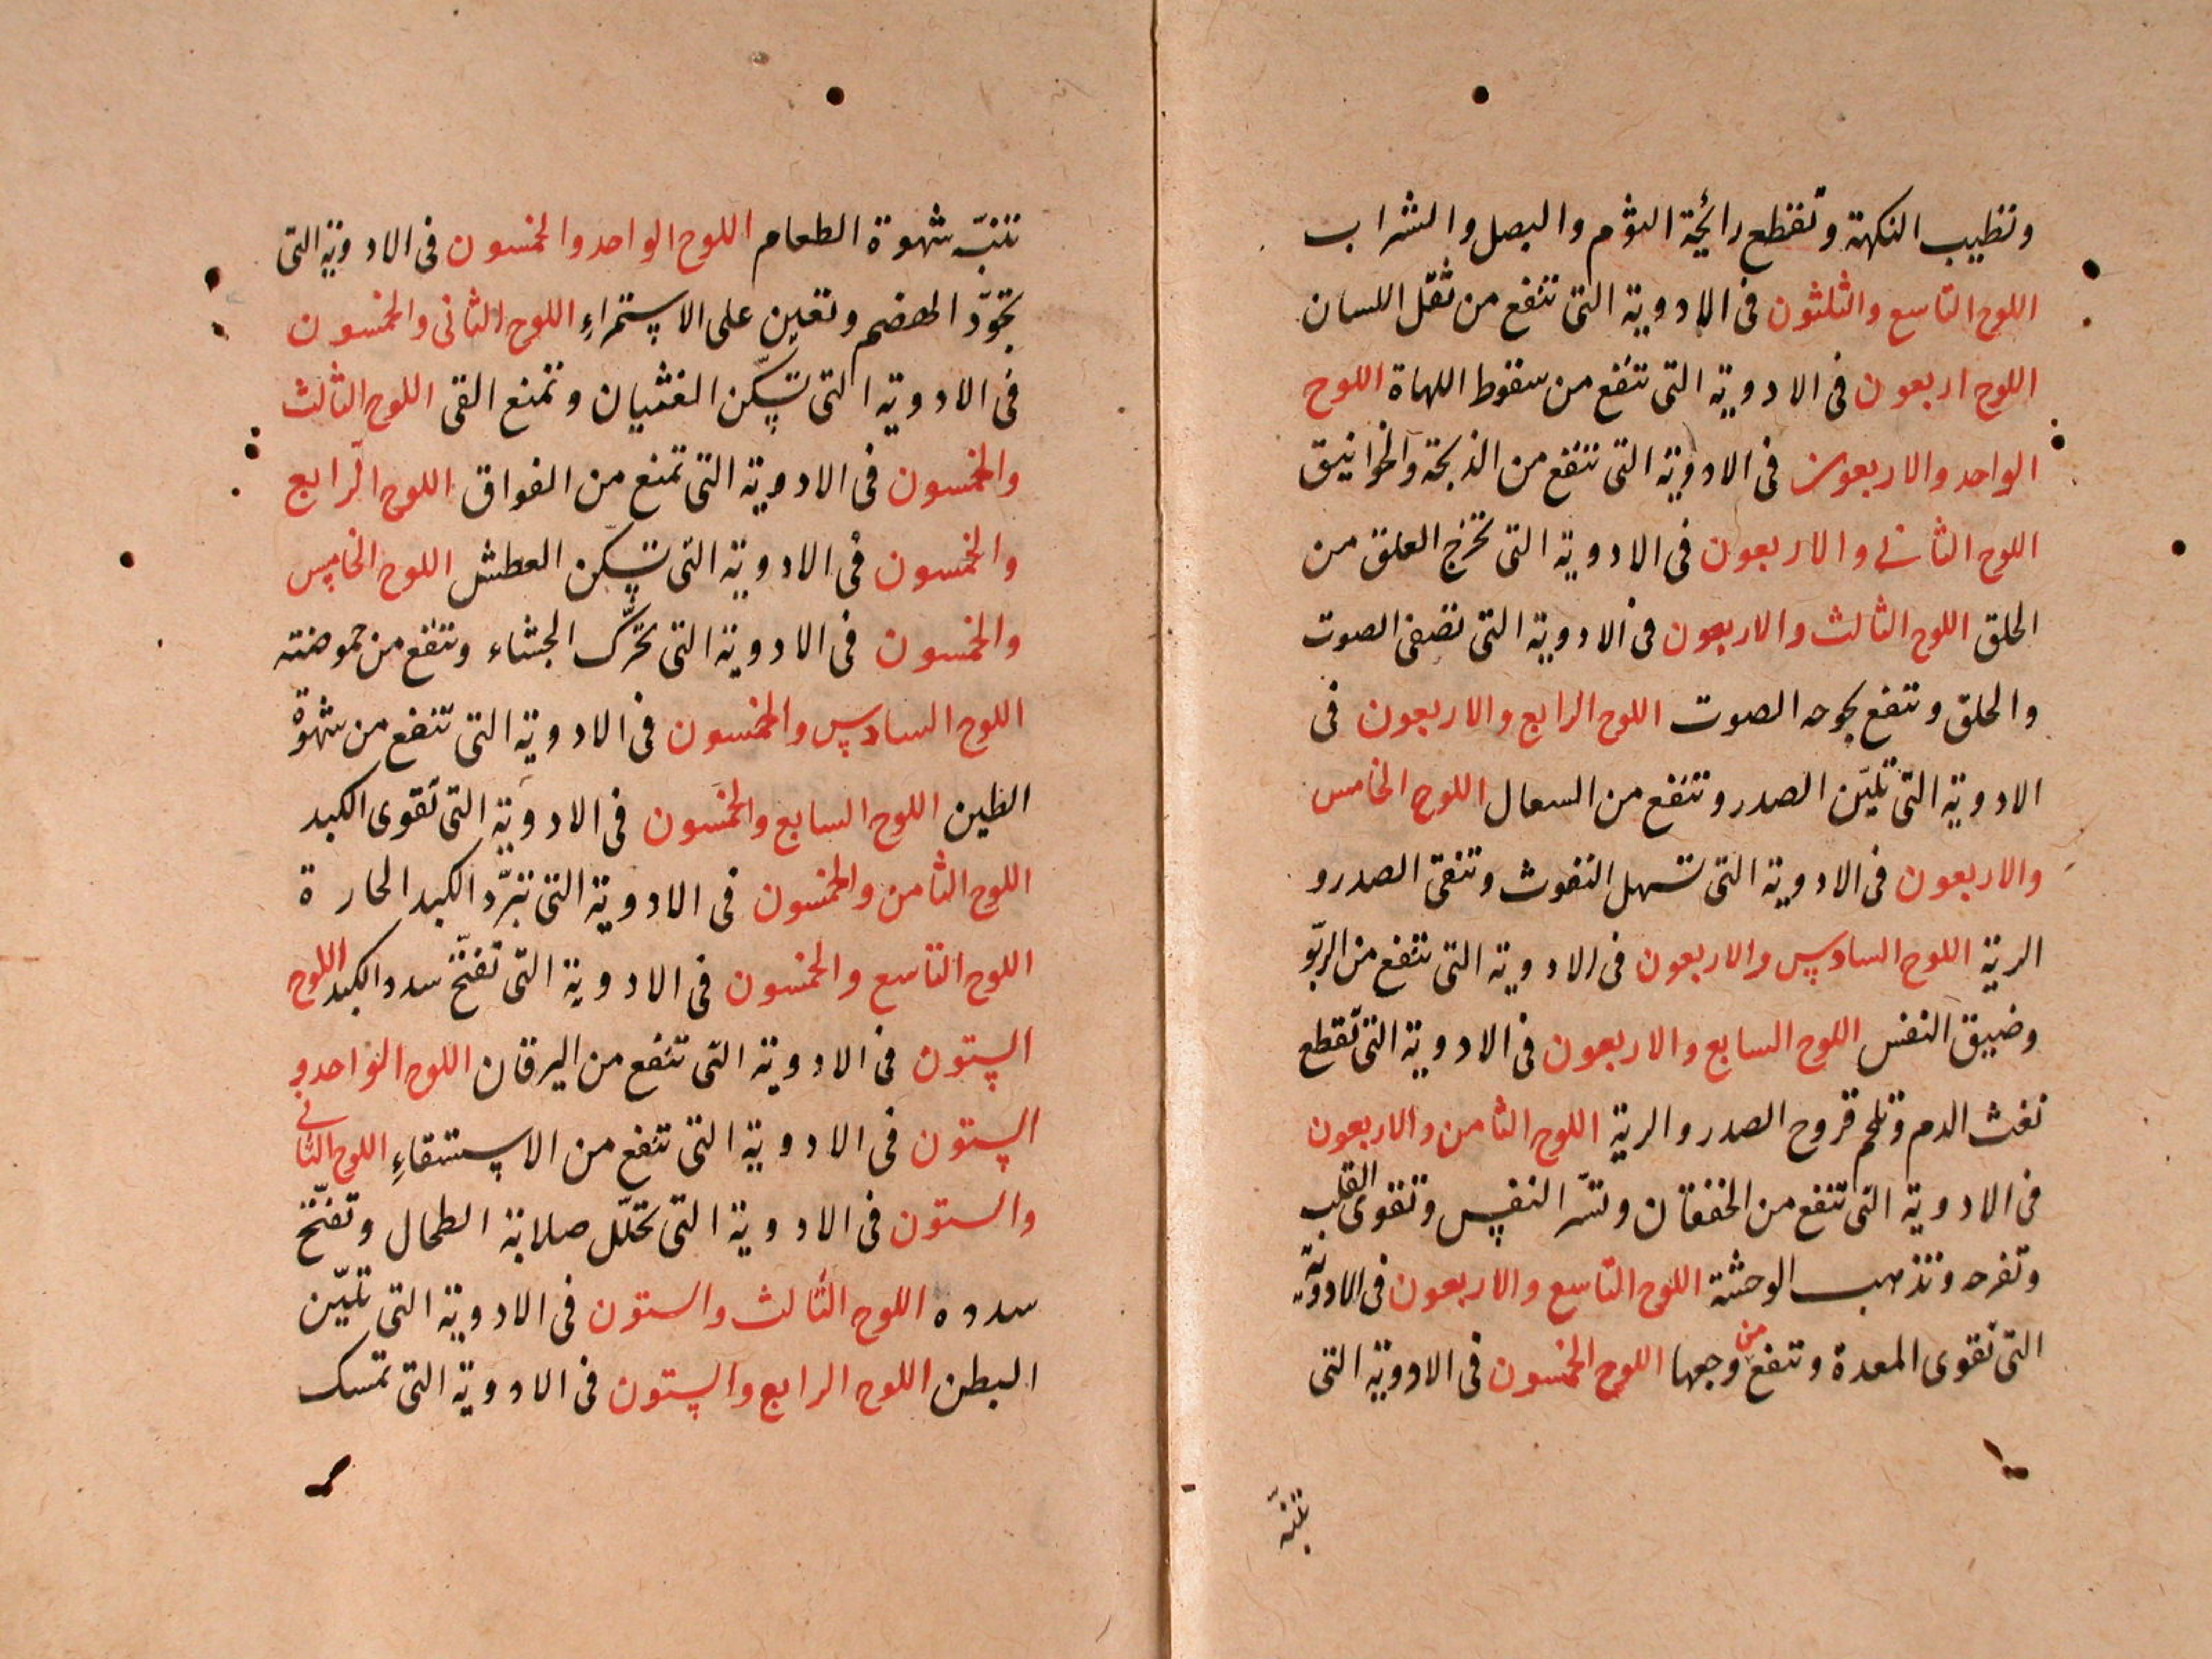 وتطيب النكهة وتقطع رائحة الثوم والبصل والشراب
اللوح التاسع والثلثون فى الادوية التى تنفع من ثقل اللسان
اللوح اربعون فى الادوية التى تنفع من سقوط اللهاة اللوح
الواحد والاربعون فى الادوية التى تنفع من الذبحة والخوانيق
اللوح الثانى والاربعون فى الادوية التى تخرج العلق من
الحلق اللوح الثالث والاربعون فى الادوية التى تصفى الصوت
والحلق وتنفع بحوحه الصوت اللوح الرابع والاربعون فى
الادوية التى تليّن الصدر وتنفع من السعال اللوح الخامس
والاربعون فى الادوية التى تسهل النفوث وتنقى الصدر و
الرية اللوح السادس والاربعون فى الادوية التى تنفع من الربّو
وضيق النفس اللوح السابع والاربعون فى الادوية التى تقطع
نفث الدم وتلحم قروح الصدر والرية اللوح الثامن والاربعون
فى الادوية التى تنفع من الخفقان وتسّر النفس وتقوى القلب
وتفرحه وتذهب الوحشة اللوح التاسع والاربعون فى الادوية
التى تقوى المعدة وتنفع من وجعها اللوح الخمسون فى الادوية التى
تنبّه
تنبّه شهوة الطعام اللوح الواحد والخمسون فى الادوية التى
تجوّد الهضم وتعين على الاستمراءِ اللوح الثانى والخمسون
فى الادوية التى تسكّن الغثيان وتمنع القى اللوح الثالث
والخمسون فى الادوية التى تمنع من الفواق اللوح الرابع
والخمسون فى الادوية التى تسكن العطش اللوح الخامس
والخمسون فى الادوية التى تحرّك الجشاء وتنفع من حموضته
اللوح السادس والخمسون فى الادوية التى تنفع من شهوة
الطين اللوح السابع والخمسون فى الادوية التى تقوى الكبد
اللوح الثامن والخمسون فى الادوية التى تبرّد الكبد الحارة
اللوح التاسع والخمسون فى الادوية التى تفتّح سدد الكبد اللوح
الستون فى الادوية التى تنفع من اليرقان اللوح الواحد و
الستون فى الادوية التى تنفع من الاستسقاءِ اللوح الثانى
والستون فى الادوية التى تحلّل صلابة الطحال وتفتّح
سدده اللوح الثالث والستون فى الادوية التى تليّن
البطن اللوح الرابع والستون فى الادوية التى تمسك